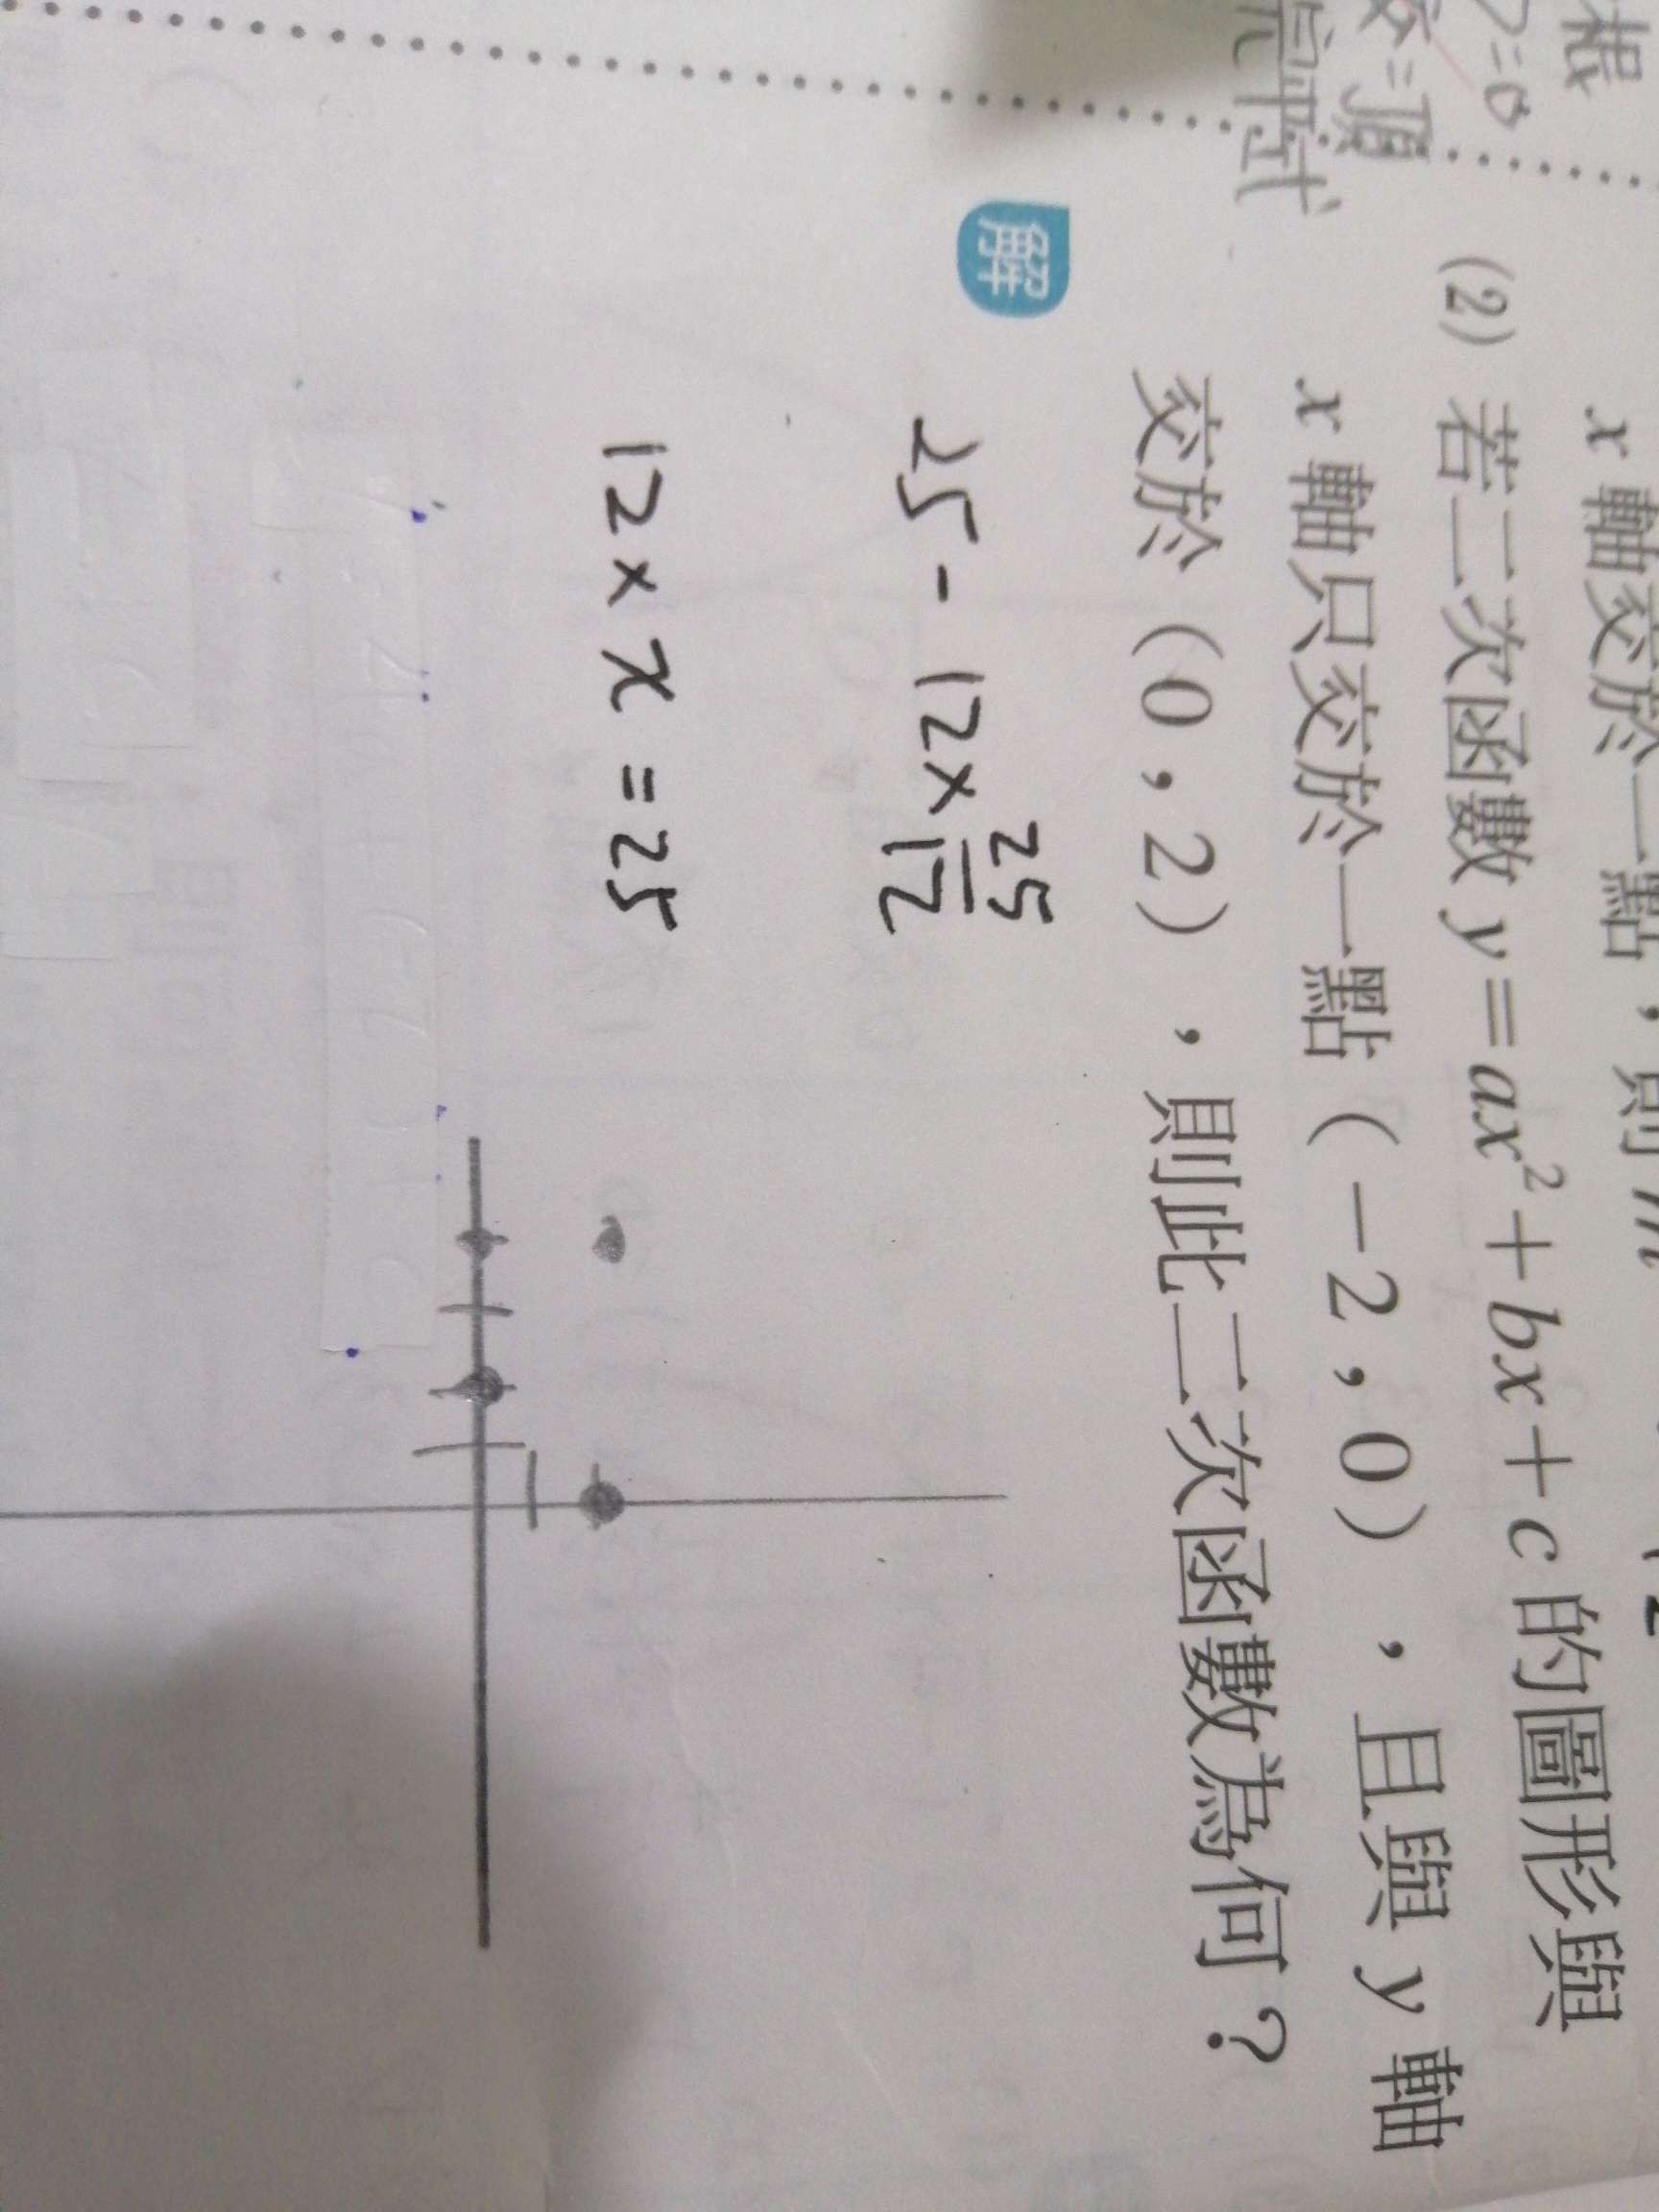 根
D=0
交=頂
完平式
x 軸交於一點，則 m
(2) 若二次函數 y=ax²+bx+c 的圖形與
x 軸只交於一點（-2，0），且與 y 軸
交於（0，2），則此二次函數為何？
解
25 - 12× 25/12
12 × x = 25